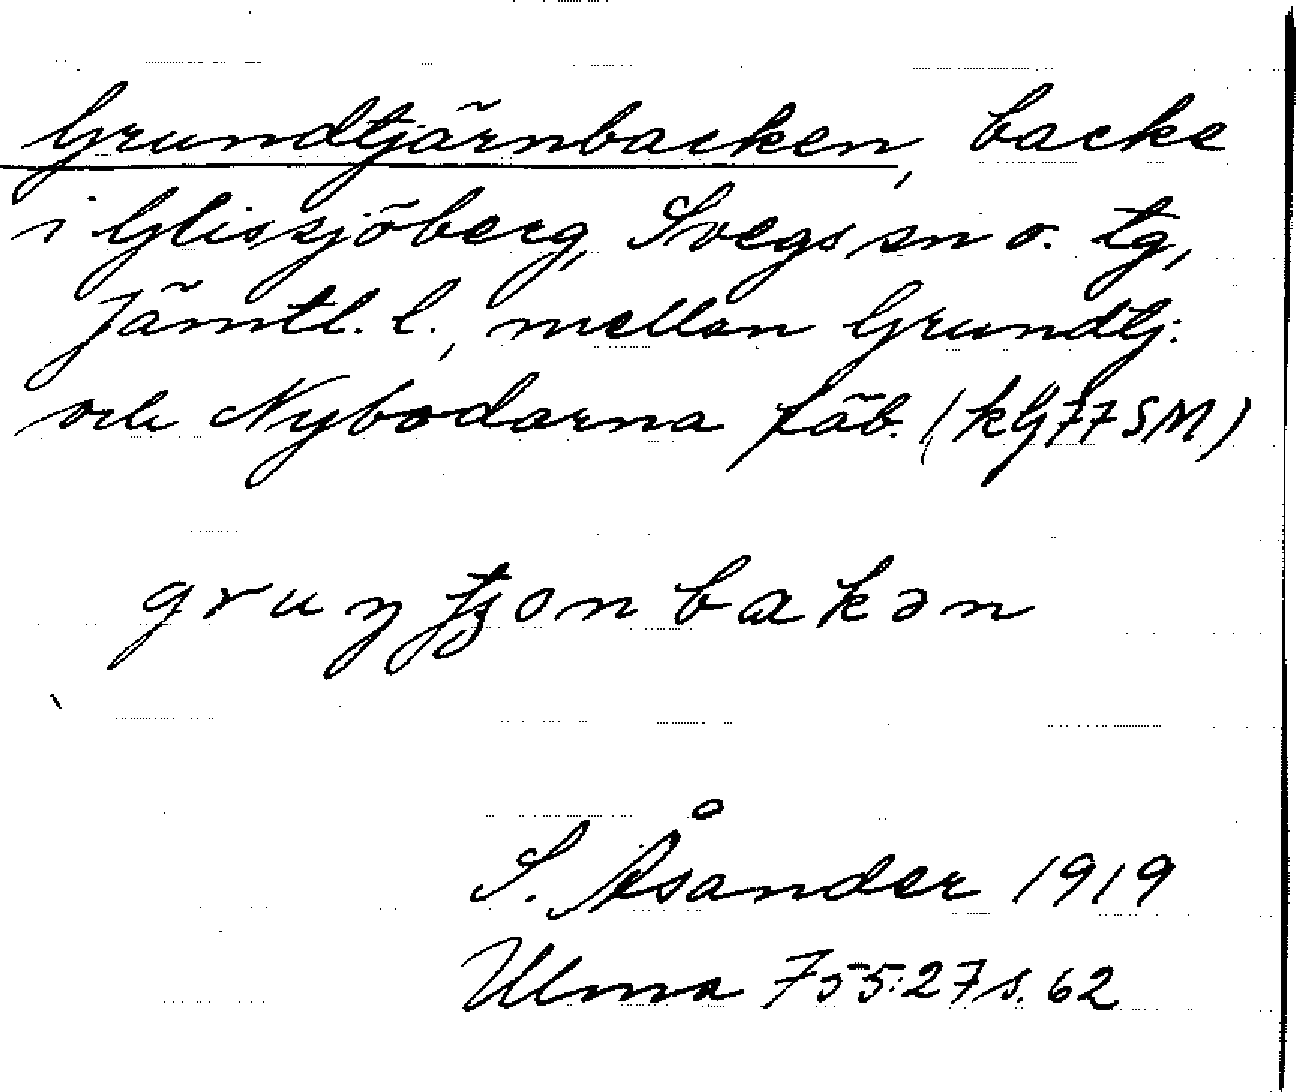 Grundtjärnbacken, backe
i Glissjöberg, Svegs sn o. tg,
Jämtl. l., mellan Grundtj.
och Nybodarna fäb. (kG77SM)
S. Åsander 1919
Ulma 755:27 s. 62